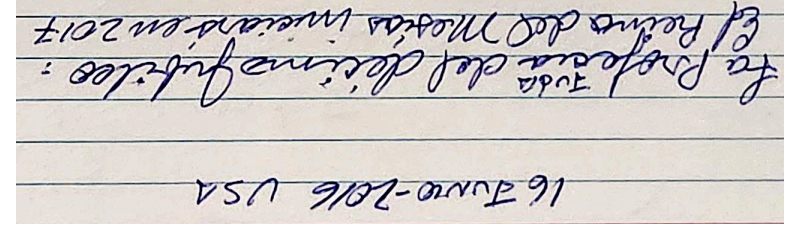 16 Junio-2016 USA
La Profecia del decimo Jubileo:
JUDA
El Reino del Mesías iniciará en 2017